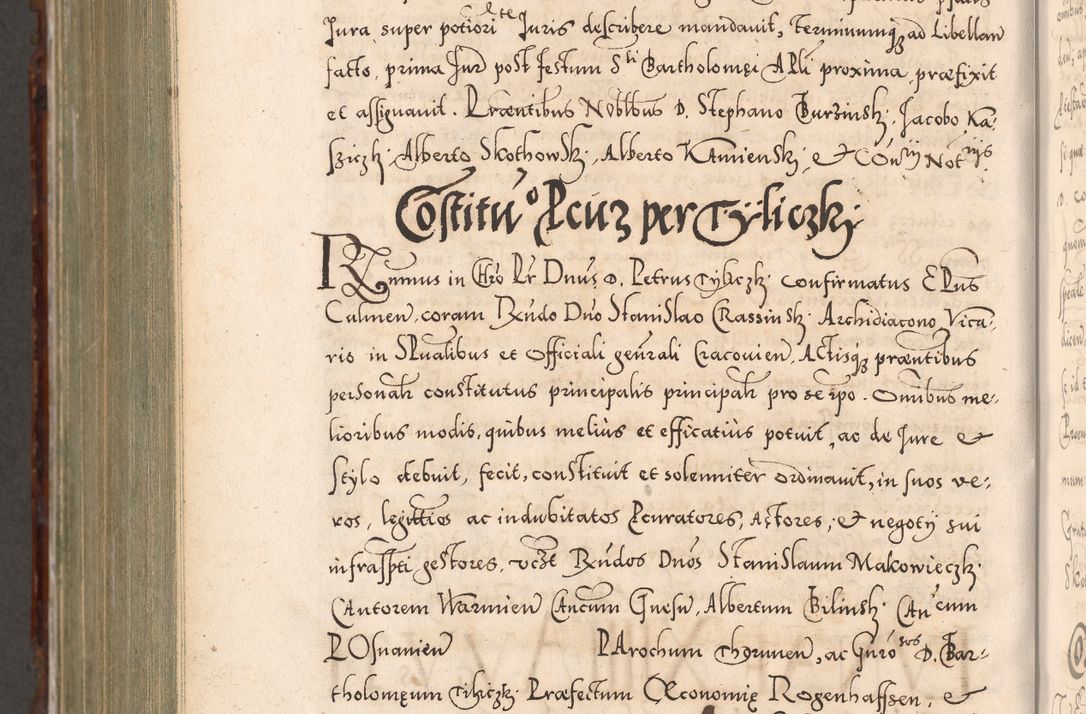 Jura super potiori te Juris describere mandavit, Terminumq̃ ad Libellan
facto, prima Jurd post festum Sti Bartholomęi Apli proxima præfixit
et assignauit. Præntibus Noblbus D. Stephano Burzinskj, Jacobo Ka:
sziczkj Alberto Skothowskj, Alberto Kamienskj & Coũrijs Notrijs
Costitũo Pcuz per Tyliczkj
Rñmus in Chro Pr Dnus D. Petrus Tyliczkj confirmatus EPus
Culmen, coram Rñdo Dño Stanislao Crassinskj Archidiacono Vica:
rio in SPualibus et Officiali geñrali Cracouien, Actisq̃ præntibus
personalr constitutus principalis principalr pro se ipo. Omibus me:
lioribus modis, quibus melius et efficatius potuit, ac de Jure &
stylo debuit, fecit, constituit et solemniter ordinauit, in suos ve:
ros, legittios ac indubitatos Pcuratores, Actores, & negotij sui
infraspti gestores, vczt Rñdos Dnos Stanislaum Makowieczkj
Cantorem Warmien Cancum Gnesn, Albertum Bilinskj Cancum
POsnanien PArochum Thorunen, ac Guro sos D. Bar:
tholomęum Tiliczkj Præfectum Œconomię Rogenhaffsen, &